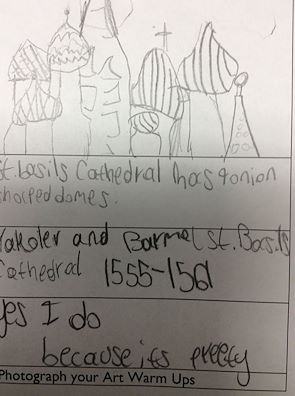 St.basils Cathedral has 9onion
sharped domes.
Yakoler and Barmal St.Basils
Cathedral 1555-1561
yes I do
because its pretty
Photograph your Art Warm Ups